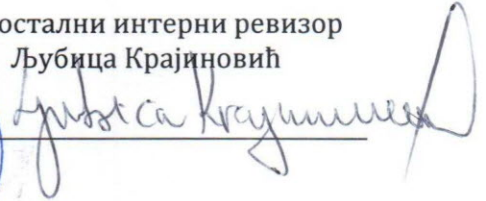 остални интерни ревизор
Љубица Крајиновић
Љубица Крајиновић